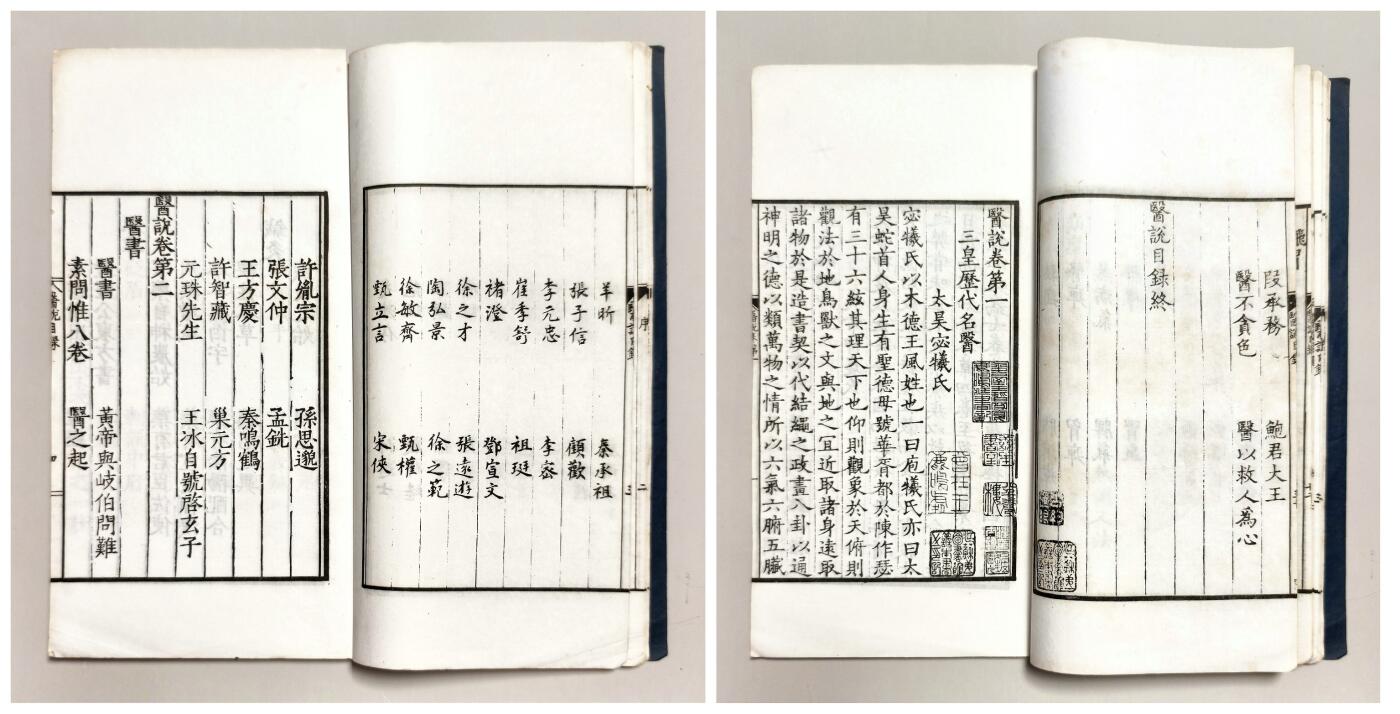 羊昕 秦承祖
張子信 顧歡
李元忠 李密
崔季舒 祖珽
褚澄 鄧宣文
徐之才 張遠遊
陶弘景 徐之範
徐敏齋 甄權
甄立言 宋俠
許胤宗 孫思邈
張文仲 孟銑
王方慶 秦鳴鶴
許智藏 巢元方
元珠先生 王冰自號啓玄子
醫說卷第二
醫書
醫書 黃帝與岐伯問難
素問惟八卷 醫之起
醫說目錄
段承務 鮑君大王
醫不貪色 醫以救人為心
醫說目録終
醫說卷第一
三皇歷代名醫
太昊宓犧氏
宓犧氏以木德王風姓也一曰庖犧氏亦曰太
昊蛇首人身生有聖德母號華胥都於陳作瑟
有三十六絃其理天下也仰則觀象於天俯則
觀法於地鳥獸之文與地之冝近取諸身遠取
諸物於是造書契以代結繩之政畫八卦以通
神明之德以類萬物之情所以六氣六腑五臟